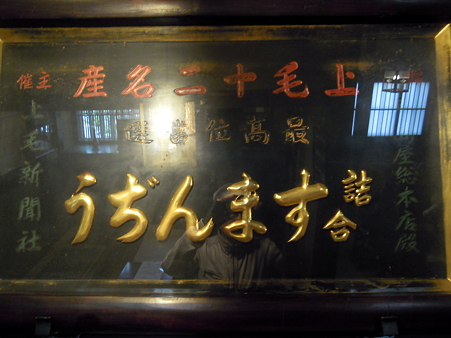 上毛十二名産
最高位當選
屋総本店殿
詰合
すまんぢう
主催
上毛新聞社